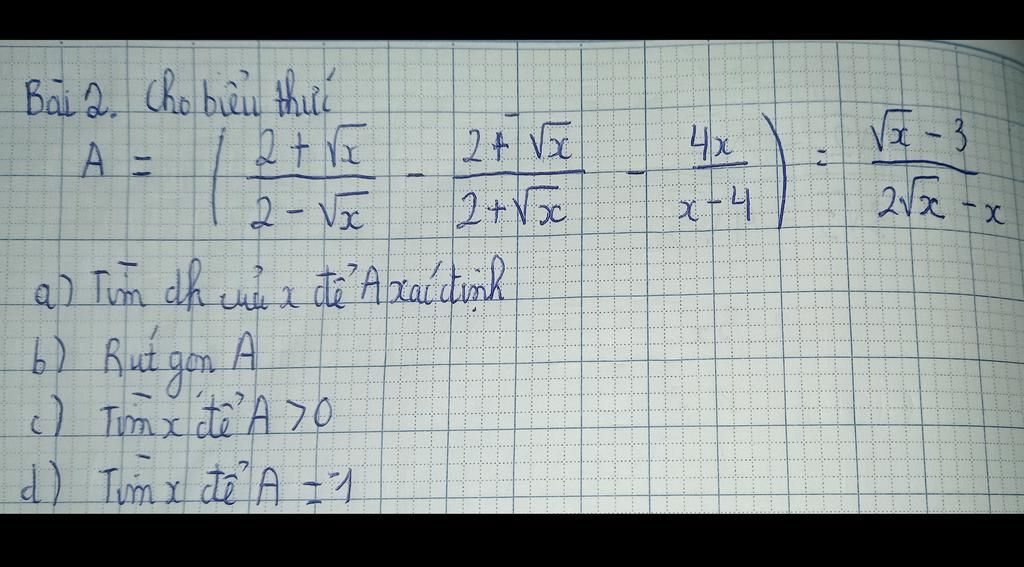 Bài 2. Cho biểu thức
A = ( (2 + √x)/(2 - √x) - (2 + √x)/(2 + √x) - 4x/(x - 4) ) : (√x - 3)/(2√x - x)
a) Tìm đk của x để A xác định
b) Rút gọn A
c) Tìm x để A > 0
d) Tìm x để A = -1